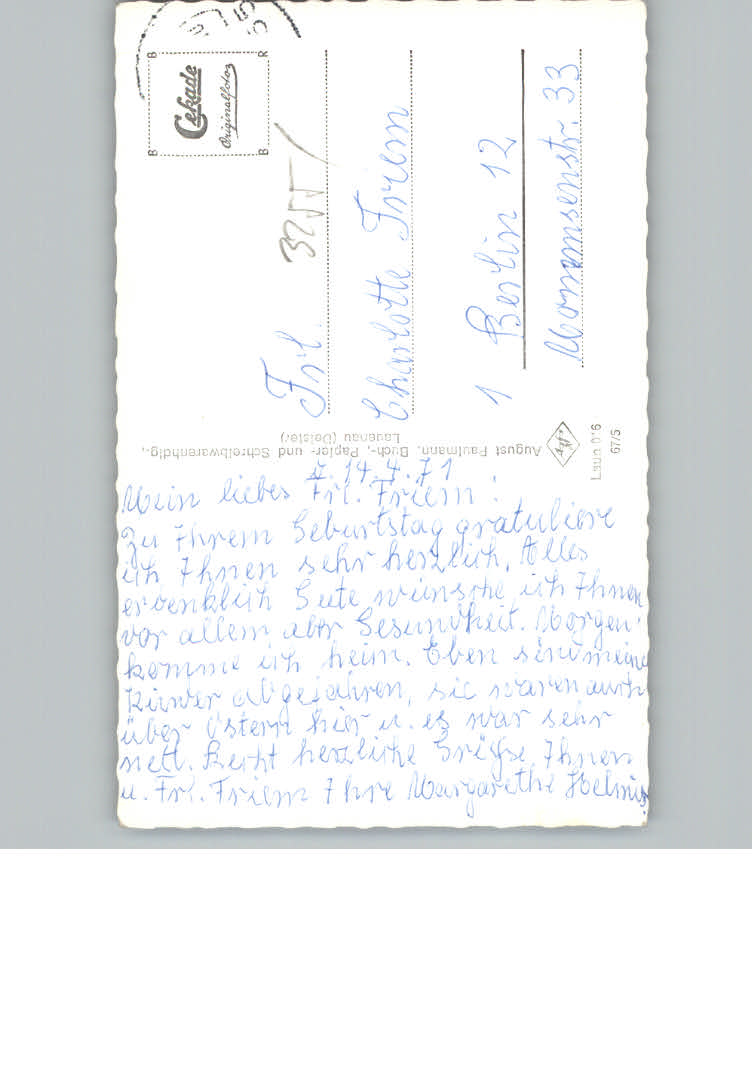 Cekade
Originalfoto
B R
B B
3255
Frl.
Charlotte Friem
1 Berlin 12
Mommsenstr. 33
August Paulmann, Buch-, Papier- und Schreibwarenhdlg.,
Lauenau (Deister)
Laun 0*6
67/5
d. 14.4.71
Mein liebes Frl. Friem!
Zu Ihrem Geburtstag gratuliere
ich Ihnen sehr herzlich. Alles
erdenklich Gute wünsche ich Ihnen
vor allem aber Gesundheit. Morgen
komme ich heim. Eben sind meine
Kinder abgefahren, sie waren auch
über Ostern hier u. es war sehr
nett. Recht herzliche Grüße Ihnen
u. Frl. Friem Ihre Margarethe